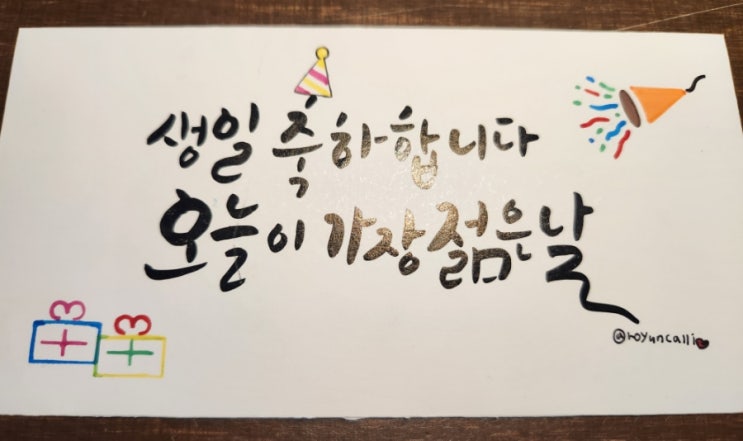 생일 축하합니다
오늘이 가장 젊은 날
@royuncalli